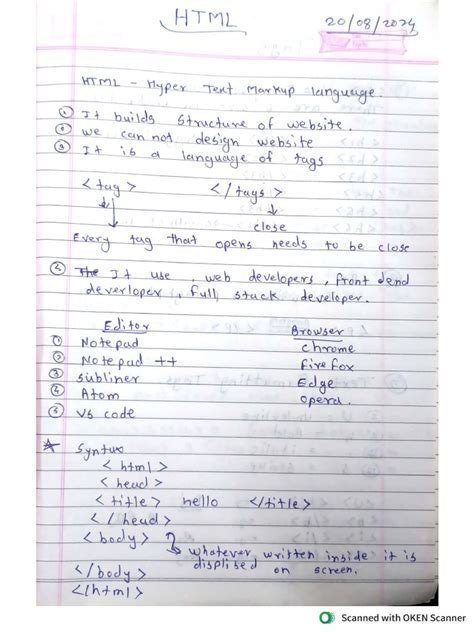 HTML
20/08/2024
HTML - Hyper Text Markup language.
① It builds structure of website.
② we can not design website
③ It is a language of tags
<tag> </tags>
close
Every tag that opens needs to be close
④ It use, web developers, front dend
deverloper, full stack developer.
Editor Browser
① Notepad chrome
② Notepad ++ Fire Fox
③ subliner Edge
④ Atom opera.
⑤ VS code
Syntax
<html>
<head>
<title> hello </title>
</head>
<body>
whatever written inside it is
displised on screen.
</body>
</html>
Scanned with OKEN Scanner